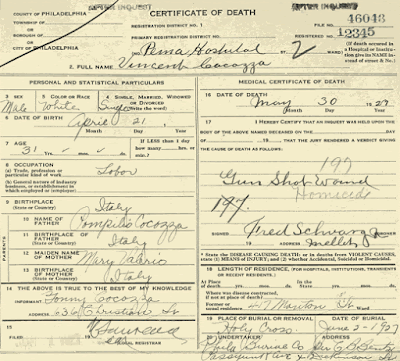 COUNTY OF PHILADELPHIA
AFTER INQUEST
CERTIFICATE OF DEATH
AFTER INQUEST
TOWNSHIP OF
OR
BOROUGH OF
OR
CITY OF PHILADELPHIA
REGISTRATION DISTRICT NO. 1
FILE NO. 46048
PRIMARY REGISTRATION DISTRICT NO.
REGISTERED NO. 12345
Penna Hospital
2 WARD
(If death occurred in a Hospital or Institution give its NAME instead of street & No.)
2 FULL NAME Vincent Cocozza
PERSONAL AND STATISTICAL PARTICULARS
3 SEX
5 COLOR OR RACE
4 SINGLE, MARRIED, WIDOWED OR DIVORCED
(Write the word)
Male White Single
6 DATE OF BIRTH
April 21
Month Day Year
7 AGE
31
IF LESS than 1 day
how many hrs.
or min.?
8 OCCUPATION
(a) Trade, profession or particular kind of work
Labor
(b) General nature of industry, business, or establishment in which employed (or employer)
9 BIRTHPLACE
(State or Country)
Italy
PARENTS
10 NAME OF FATHER
Pompilio Cocozza
11 BIRTHPLACE OF FATHER
(State or Country)
Italy
12 MAIDEN NAME OF MOTHER
Mary
13 BIRTHPLACE OF MOTHER
(State or Country)
Italy
14 THE ABOVE IS TRUE TO THE BEST OF MY KNOWLEDGE
INFORMANT Tonny Cocozza
ADDRESS 636 Christian St
15
MEDICAL CERTIFICATE OF DEATH
16 DATE OF DEATH
May 30 1927
Month Day Year
17 I HEREBY CERTIFY THAT AN INQUEST WAS HELD UPON THE BODY OF THE ABOVE NAMED DECEASED ON THE
DAY OF 19
THAT THE JURY RENDERED A VERDICT GIVING THE CAUSE OF DEATH AS FOLLOWS:
197
Gun Shot Wound
Homicide
197.
SIGNED Fred Schwarz Jr
ADDRESS
STATE THE DISEASE CAUSING DEATH; OR IN DEATHS FROM VIOLENT CAUSES, STATE (1) MEANS OF INJURY; AND (2) WHETHER ACCIDENTAL, SUICIDAL OR HOMICIDAL.
18 LENGTH OF RESIDENCE, (FOR HOSPITALS, INSTITUTIONS, TRANSIENTS OR RECENT RESIDENTS)
At Place of death
Where was disease contracted, if not at place of death?
Former or usual residence
19 PLACE OF BURIAL OR REMOVAL
DATE OF BURIAL
Holy Cross
June 2-1927
20 UNDERTAKER
Phila Burial Co
ADDRESS
Passyunk Ave & Dickinson St